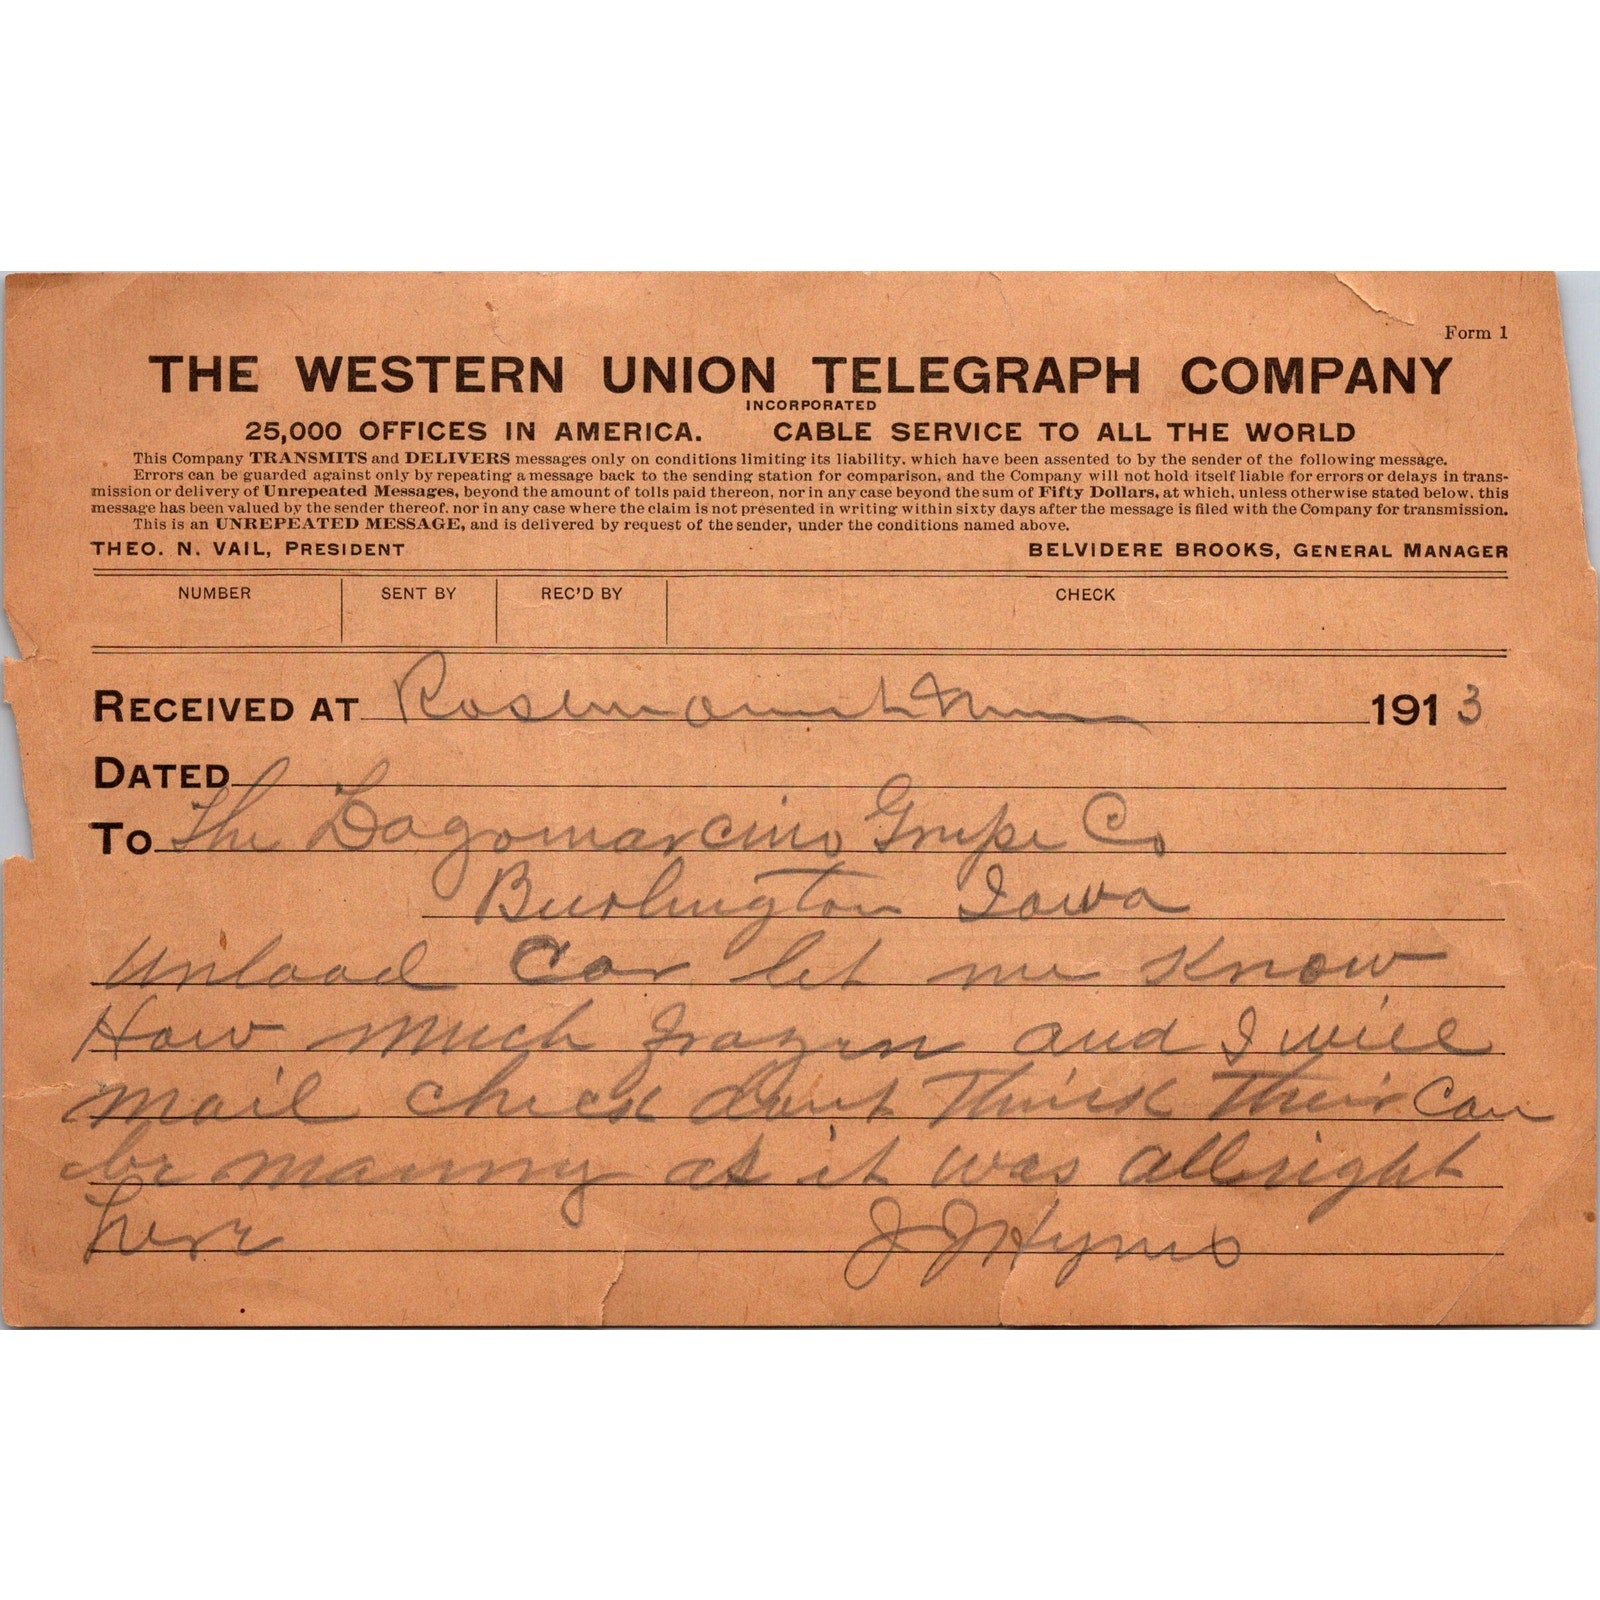 Form 1
THE WESTERN UNION TELEGRAPH COMPANY
INCORPORATED
25,000 OFFICES IN AMERICA. CABLE SERVICE TO ALL THE WORLD
This Company TRANSMITS and DELIVERS messages only on conditions limiting its liability, which have been assented to by the sender of the following message.
Errors can be guarded against only by repeating a message back to the sending station for comparison, and the Company will not hold itself liable for errors or delays in trans-
mission or delivery of Unrepeated Messages, beyond the amount of tolls paid thereon, nor in any case beyond the sum of Fifty Dollars, at which, unless otherwise stated below, this
message has been valued by the sender thereof, nor in any case where the claim is not presented in writing within sixty days after the message is filed with the Company for transmission.
This is an UNREPEATED MESSAGE, and is delivered by request of the sender, under the conditions named above.
THEO. N. VAIL, PRESIDENT BELVIDERE BROOKS, GENERAL MANAGER
NUMBER SENT BY REC'D BY CHECK
RECEIVED AT Rosemount Minn 1913
DATED
To The Lagomarcino Grupe Co
Burlington Iowa
Unload Car let me Know
How much frozen and I will
mail check dont Think Their Can
be manny as it was allright
here J J Hynes